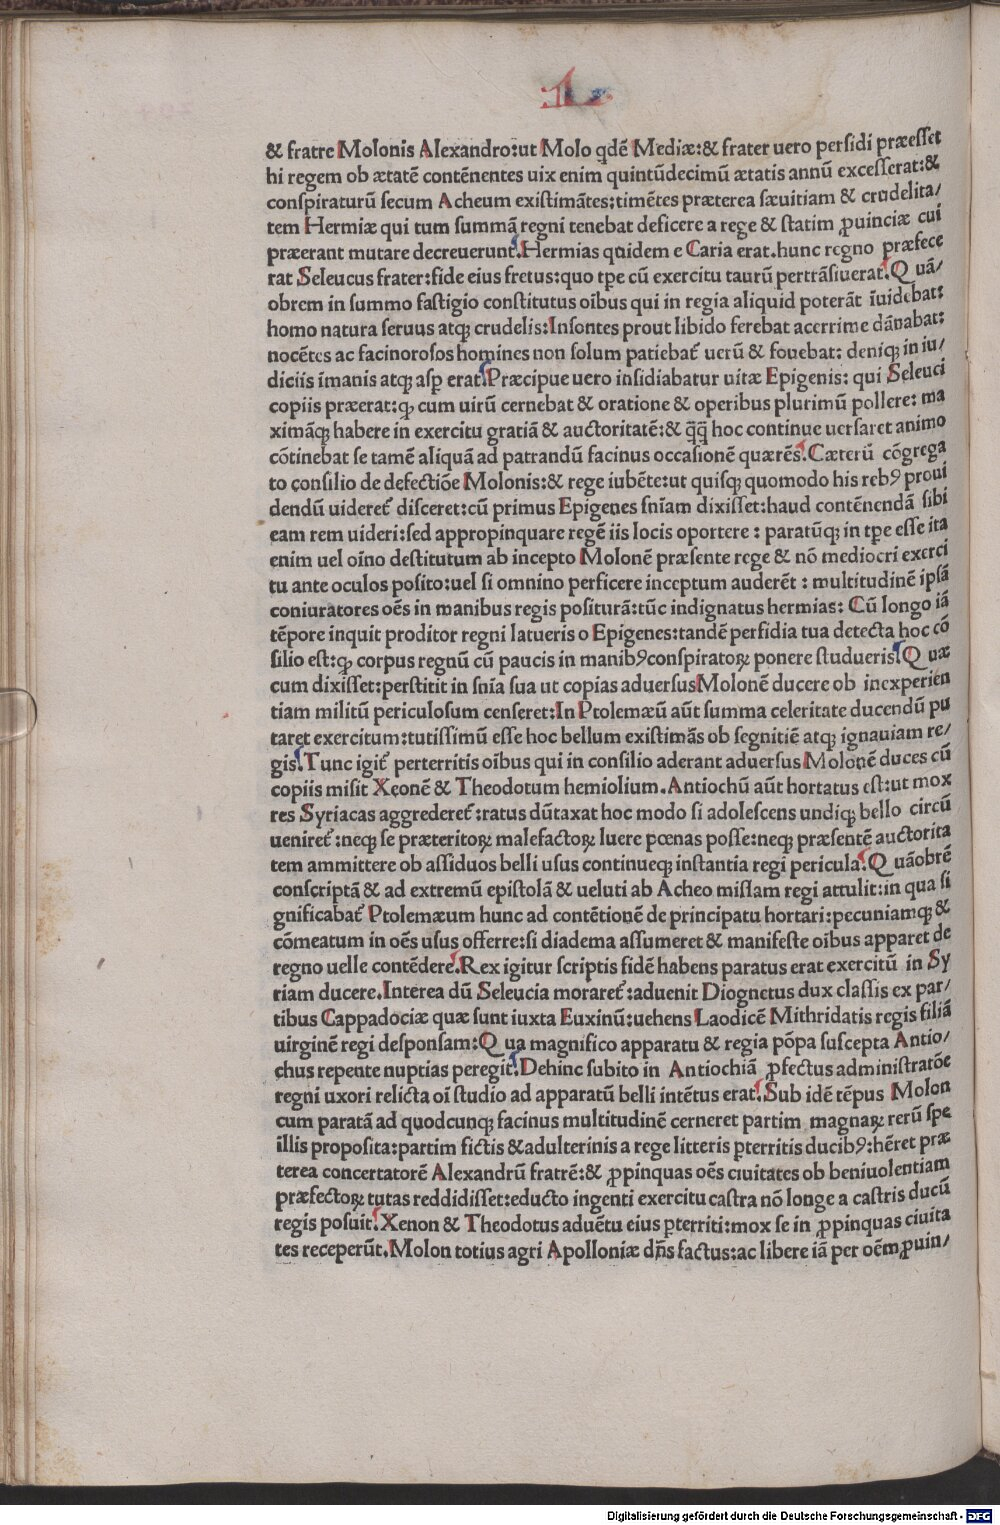 L
& fratre Molonis Alexandro:ut Molo qdē Mediæ:& frater uero persidi præesset
hi regem ob ætatē contēnentes uix enim quintūdecimū ætatis annū excesserat:&
conspiraturū secum Acheum existimātes:timētes præterea sæuitiam & crudelita/
tem Hermiæ qui tum summā regni tenebat deficere a rege & statim ꝓuinciæ cui
præerant mutare decreuerunt.Hermias quidem e Caria erat.hunc regno præfece
rat Seleucus frater:fide eius fretus:quo tꝑe cū exercitu taurū pertrāsiuerat.Q uā/
obrem in summo fastigio constitutus oībus qui in regia aliquid poterāt īuidebat:
homo natura seruus atqꝫ crudelis:Insontes prout libido ferebat acerrime dānabat:
nocētes ac facinorosos homines non solum patiebat᷑ uerū & fouebat: deniqꝫ in iu/
diciis īmanis atqꝫ asꝑ erat.Præcipue uero insidiabatur uitæ Epigenis: qui Seleuci
copiis præerat:ꝙ cum uirū cernebat & oratione & operibus plurimū pollere: ma
ximāqꝫ habere in exercitu gratiā & auctoritatē:& q̄q̄ hoc continue uersaret animo
cōtinebat se tamē aliquā ad patrandū facinus occasionē quærēs.Cæterū cōgrega
to consilio de defectiōe Molonis:& rege iubēte:ut quisqꝫ quomodo his rebꝰ proui
dendū uideret᷑ disceret:cū primus Epigenes sn̄iam dixisset:haud contēnendā sibi
eam rem uideri:sed appropinquare regē iis locis oportere : paratūqꝫ in tꝑe esse ita
enim uel oīno destitutum ab incepto Molonē præsente rege & nō mediocri exerci
tu ante oculos posito:uel si omnino perficere inceptum auderēt : multitudinē ipsā
coniuratores oēs in manibus regis positurā:tūc indignatus hermias: Cū longo iā
tēpore inquit proditor regni latueris o Epigenes:tandē perfidia tua detecta hoc cō
silio est:ꝙ corpus regnū cū paucis in manibꝰconspiratoꝝ ponere studueris.Q uæ
cum dixisset:perstitit in sn̄ia sua ut copias aduersusMolonē ducere ob inexperien
tiam militū periculosum censeret:In Ptolemæū aūt summa celeritate ducendū pu
taret exercitum:tutissimū esse hoc bellum existimās ob segnitiē atqꝫ ignauiam re/
gis.Tunc igit᷑ perterritis oībus qui in consilio aderant aduersus Molonē duces cū
copiis misit Xęonē & Theodotum hemiolium.Antiochū aūt hortatus est:ut mox
res Syriacas aggrederet᷑:ratus dūtaxat hoc modo si adolescens undiqꝫ bello circū
ueniret᷑:neqꝫ se præteritoꝝ malefactoꝝ luere pœnas posse:neqꝫ præsentē auctorita
tem ammittere ob assiduos belli usus continueqꝫ instantia regi pericula.Q uāobrē
conscriptā & ad extremū epistolā & ueluti ab Acheo missam regi attulit:in qua si
gnificabat᷑ Ptolemæum hunc ad contētionē de principatu hortari:pecuniamqꝫ &
cōmeatum in oēs usus offerre:si diadema assumeret & manifeste oībus apparet de
regno uelle contēdere.Rex igitur scriptis fidē habens paratus erat exercitū in Sy
riam ducere.Interea dū Seleucia moraret᷑:aduenit Diognetus dux classis ex par/
tibus Cappadociæ quæ sunt iuxta Euxinū:uehens Laodicē Mithridatis regis filiā
uirginē regi desponsam:Q ua magnifico apparatu & regia pōpa suscepta Antio/
chus repente nuptias peregit.Dehinc subito in Antiochiā ꝓfectus administratōe
regni uxori relicta oī studio ad apparatū belli intētus erat.Sub idē tēpus Molon
cum paratā ad quodcunqꝫ facinus multitudinē cerneret partim magnaꝝ rerū spe
illis proposita:partim fictis &adulterinis a rege litteris ꝑterritis ducibꝰ:hēret præ
terea concertatorē Alexandrū fratrē:& ꝓpinquas oēs ciuitates ob beniuolentiam
præfectoꝝ tutas reddidisset:educto ingenti exercitu castra nō longe a castris ducū
regis posuit.Xenon & Theodotus aduētu eius ꝑterriti:mox se in ꝓpinquas ciuita
tes receperūt.Molon totius agri Apolloniæ dn̄s factus:ac libere iā per oēm ꝓuin/
Digitalisierung gefördert durch die Deutsche Forschungsgemeinschaft - DFG